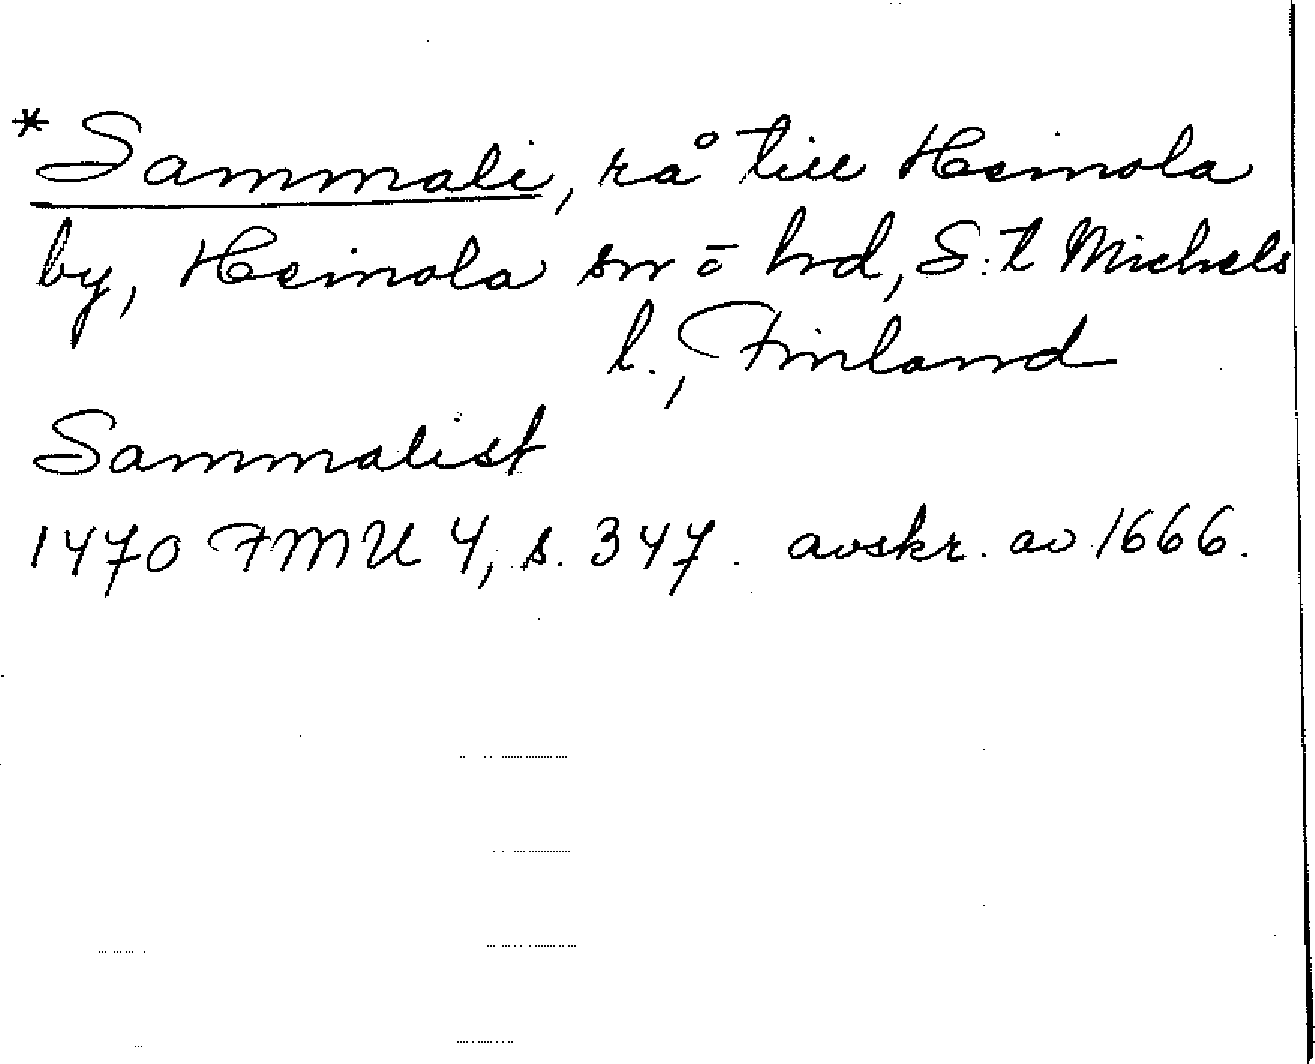 *Sammali, rå till Heinola
by, Heinola sn o hd, S:t Michels
l., Finland
Sammalist
1470 FMU 4, s. 347. avskr. av 1666.